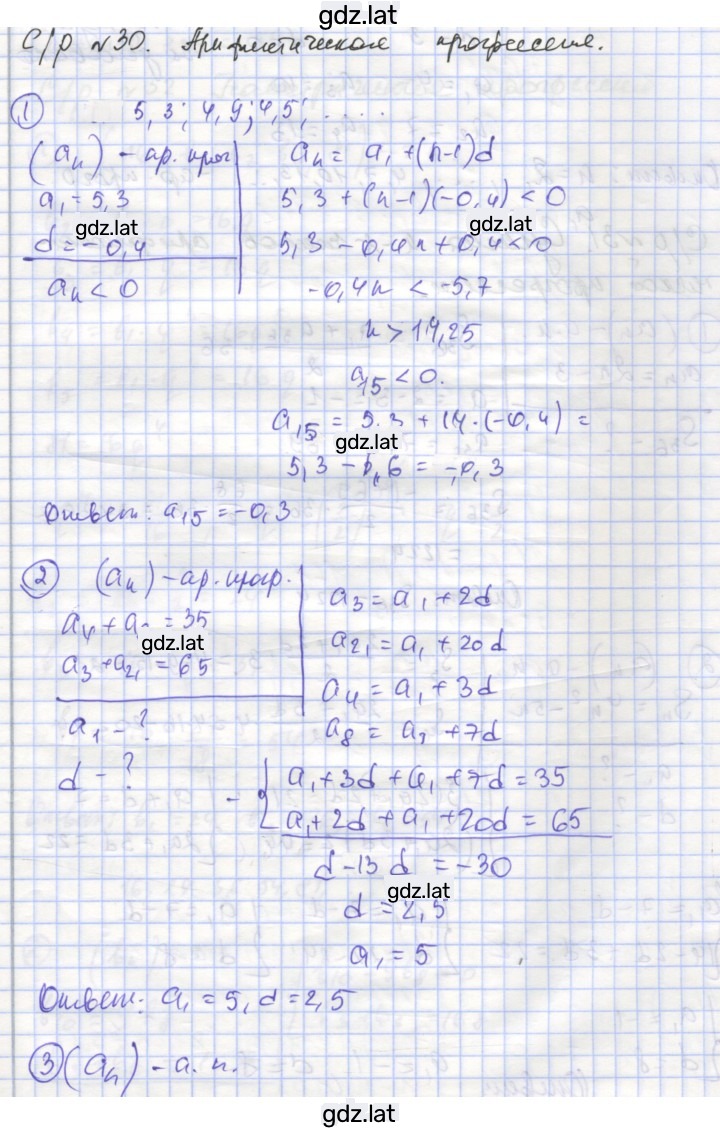 gdz.lat
С/р №30. Арифметическая прогрессия.
① 5,3; 4,9; 4,5; .....
(aₙ) - ар. прог
a₁ = 5,3
gdz.lat
d = -0,4
aₙ < 0
aₙ = a₁ + (n-1)d
5,3 + (n-1)(-0,4) < 0
gdz.lat
5,3 - 0,4n + 0,4 < 0
-0,4n < -5,7
n > 14,25
a₁₅ < 0.
a₁₅ = 5.3 + 14·(-0,4) =
gdz.lat
5,3 - 5,6 = -0,3
Ответ: a₁₅ = -0,3
② (aₙ) - ар. прогр.
a₄ + a = 35
gdz.lat
a₃ + a₂₁ = 65
a₁ - ?
d - ?
a₃ = a₁ + 2d
a₂₁ = a₁ + 20d
a₄ = a₁ + 3d
a₈ = a₁ + 7d
- { a₁ + 3d + a₁ + 7d = 35
a₁ + 2d + a₁ + 20d = 65
d - 13d = -30
gdz.lat
d = 2,5
a₁ = 5
Ответ: a₁ = 5, d = 2,5
③ (aₙ) - а. п.
gdz.lat